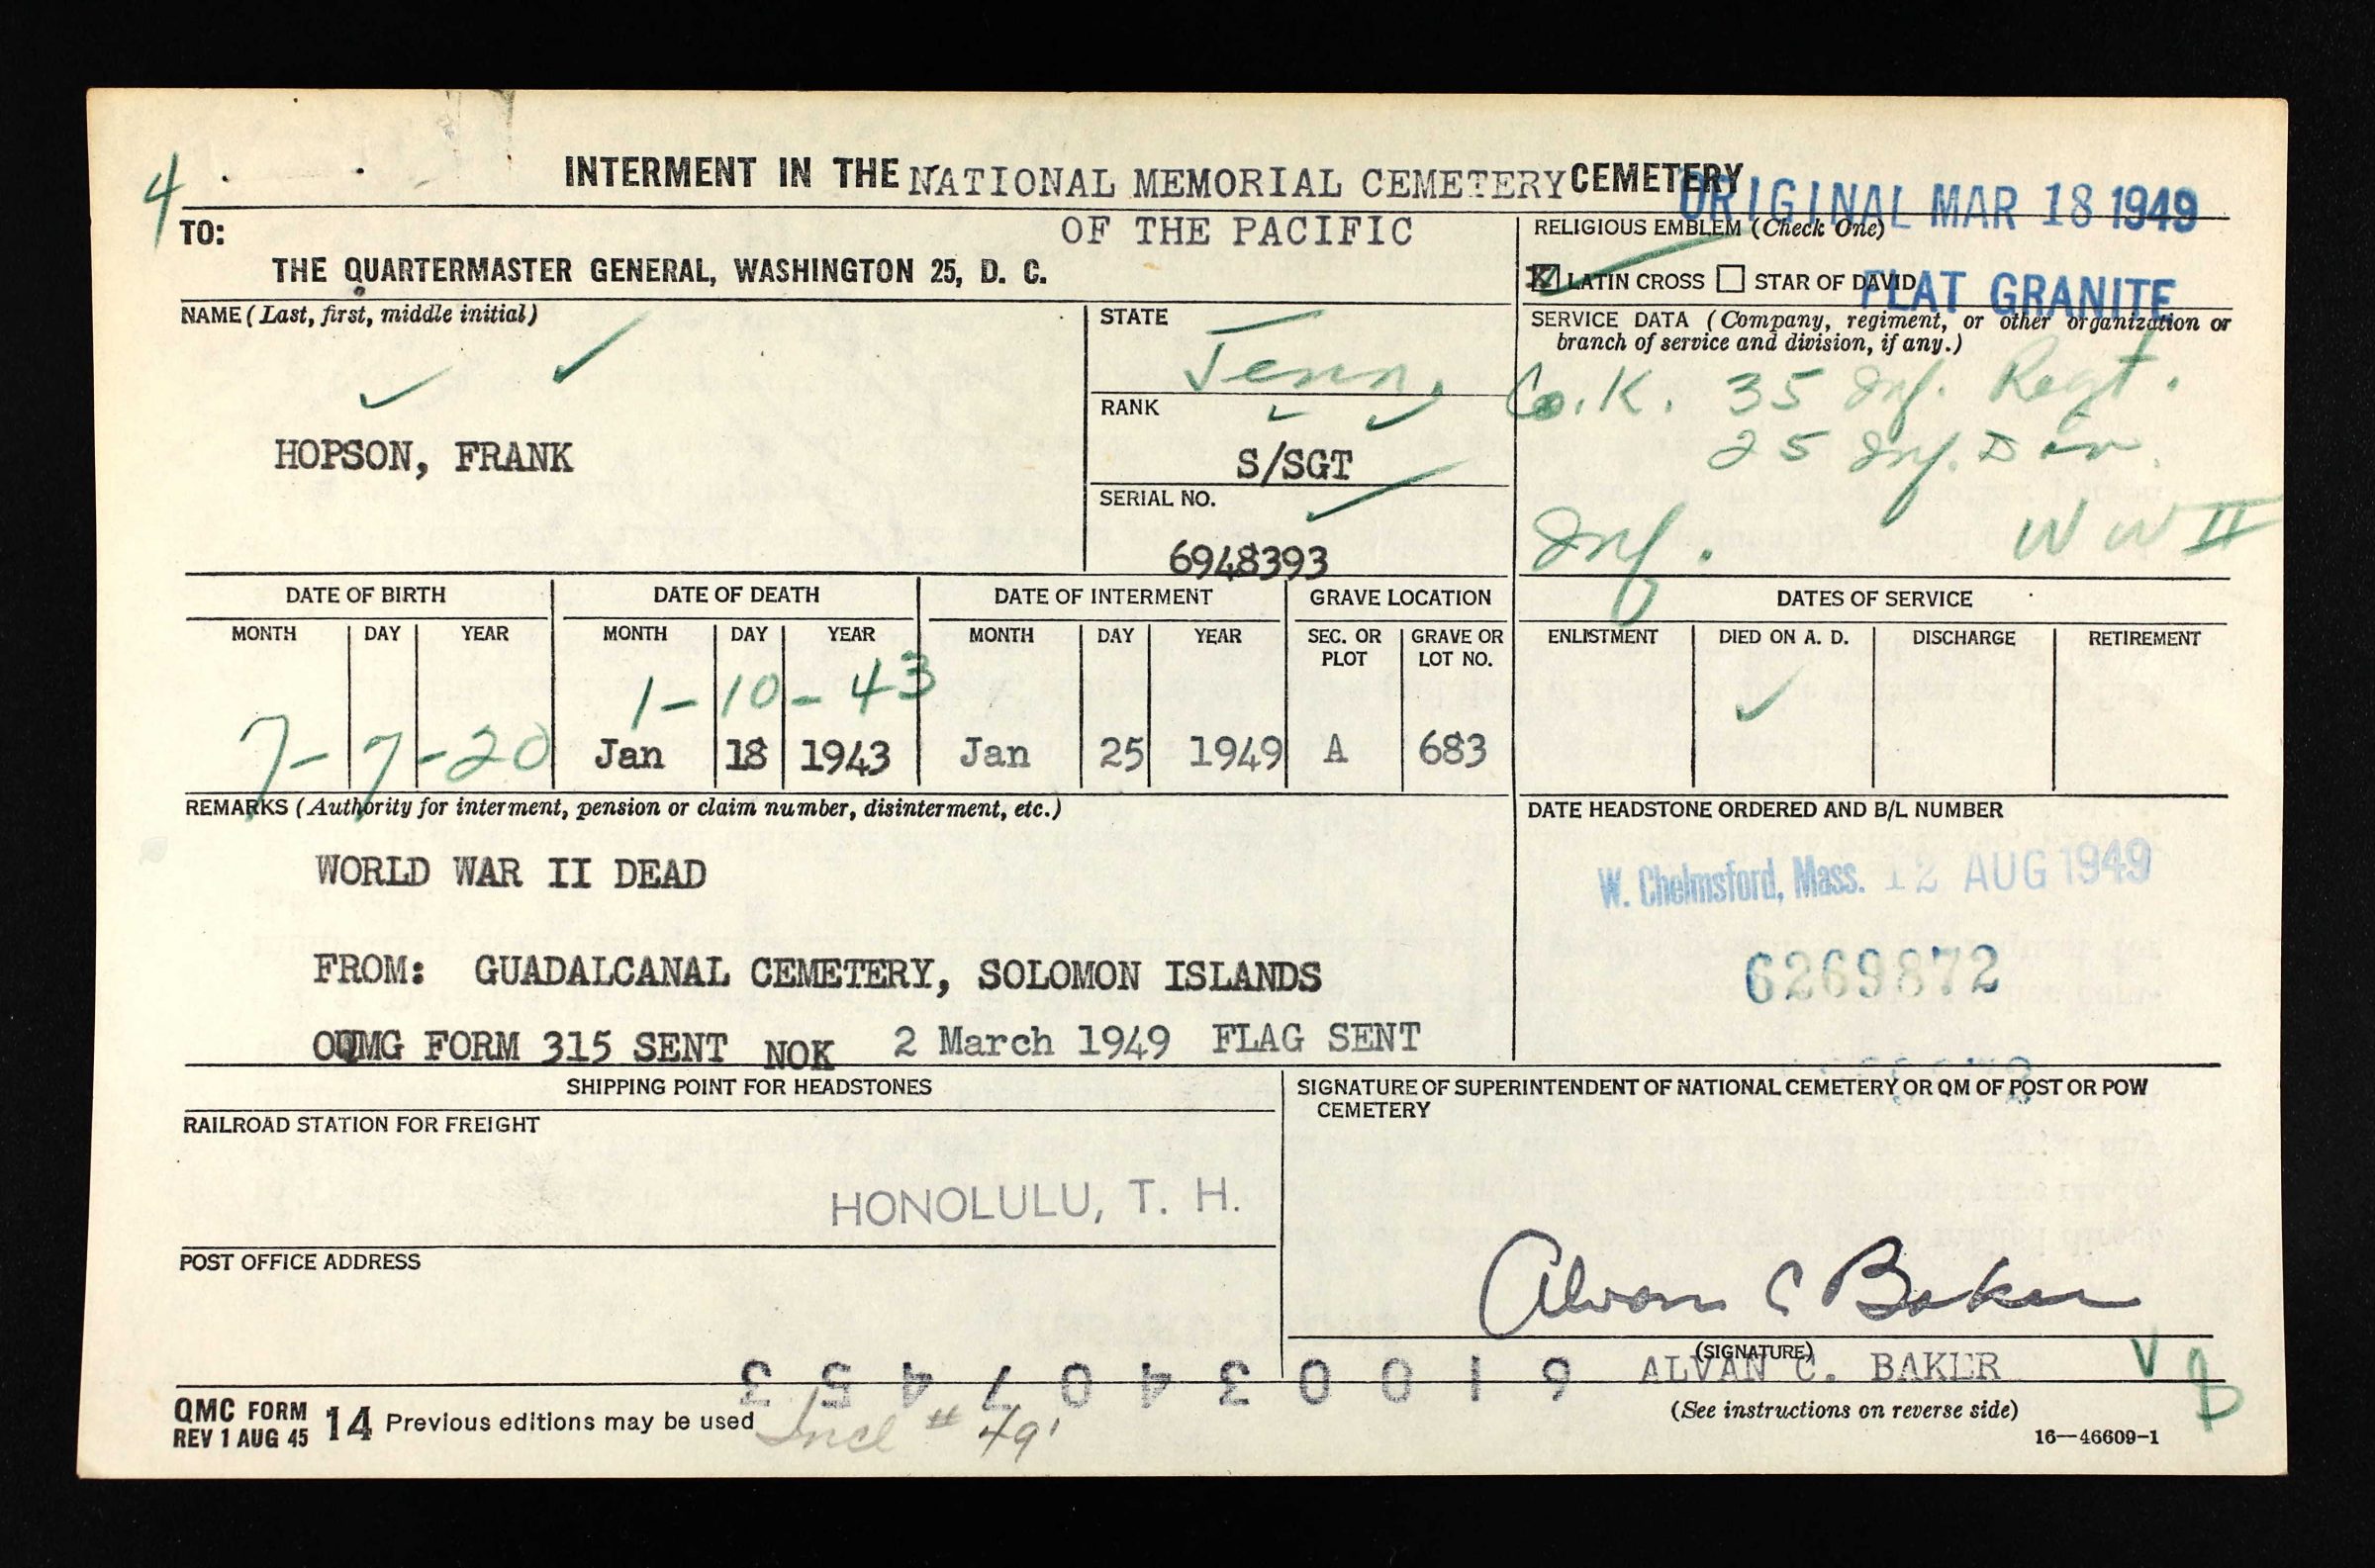 4
INTERMENT IN THE NATIONAL MEMORIAL CEMETERY CEMETERY
ORIGINAL MAR 18 1949
TO:
OF THE PACIFIC
THE QUARTERMASTER GENERAL, WASHINGTON 25, D. C.
RELIGIOUS EMBLEM (Check One)
X LATIN CROSS STAR OF DAVID
FLAT GRANITE
NAME (Last, first, middle initial)
HOPSON, FRANK
STATE
Tenn.
RANK
S/SGT
SERIAL NO.
6948393
SERVICE DATA (Company, regiment, or other organization or
branch of service and division, if any.)
Co. K. 35 Inf. Regt.
25 Inf. Div.
Inf. WW II
DATE OF BIRTH DATE OF DEATH DATE OF INTERMENT GRAVE LOCATION DATES OF SERVICE
MONTH DAY YEAR MONTH DAY YEAR MONTH DAY YEAR SEC. OR PLOT GRAVE OR LOT NO. ENLISTMENT DIED ON A. D. DISCHARGE RETIREMENT
1-10-43
7-7-20 Jan 18 1943 Jan 25 1949 A 683
REMARKS (Authority for interment, pension or claim number, disinterment, etc.)
WORLD WAR II DEAD
FROM: GUADALCANAL CEMETERY, SOLOMON ISLANDS
OQMG FORM 315 SENT NOK 2 March 1949 FLAG SENT
DATE HEADSTONE ORDERED AND B/L NUMBER
W. Chelmsford, Mass. 12 AUG 1949
6269872
SHIPPING POINT FOR HEADSTONES
RAILROAD STATION FOR FREIGHT
HONOLULU, T. H.
POST OFFICE ADDRESS
SIGNATURE OF SUPERINTENDENT OF NATIONAL CEMETERY OR QM OF POST OR POW
CEMETERY
Alvan C Baker
(SIGNATURE)
ALVAN C. BAKER
61003407453
QMC FORM 14 Previous editions may be used
REV 1 AUG 45
Incl # 491
(See instructions on reverse side)
16—46609-1